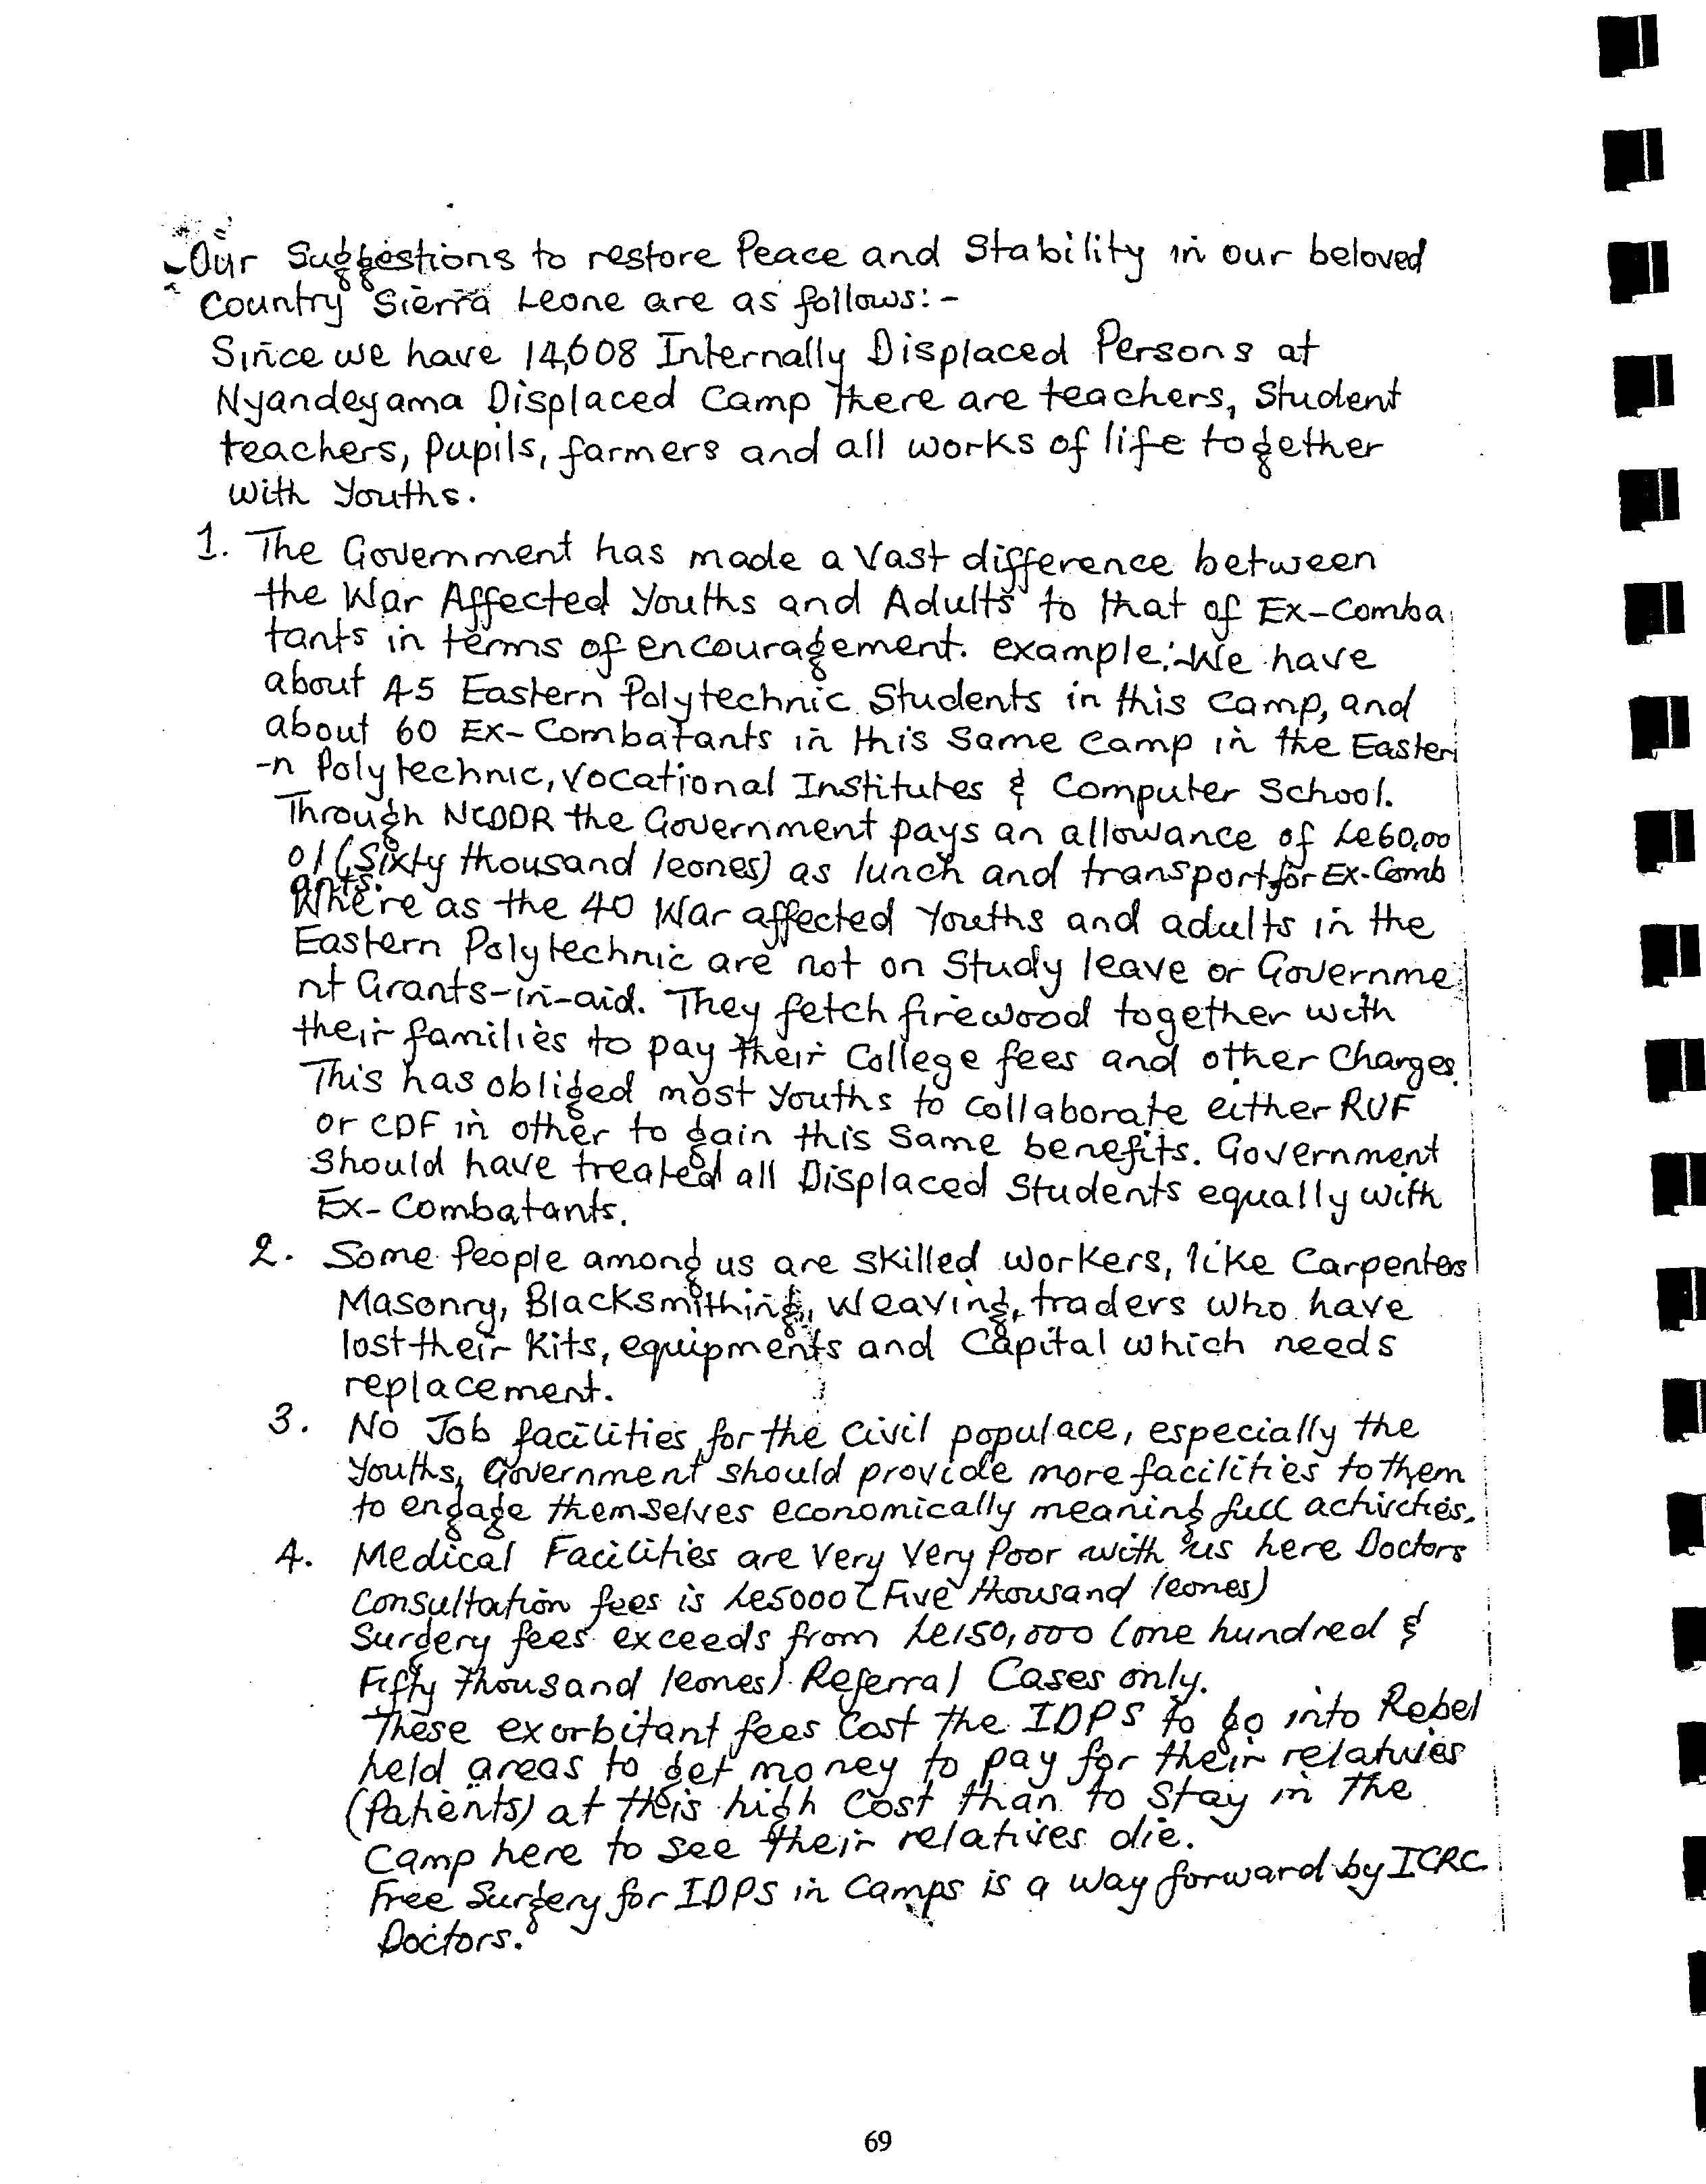 Our Suggestions to restore Peace and Stability in our beloved
Country Sierra Leone are as follows:-
Since we have 14,608 Internally Displaced Persons at
Nyandeyama Displaced Camp There are teachers, Student
teachers, pupils, farmers and all works of life together
with Youths.
1. The Government has made a Vast difference between
the War Affected Youths and Adults to that of Ex-Comba
tants in terms of encouragement. example:-We have
about 45 Eastern Polytechnic Students in this Camp, and
about 60 Ex-Combatants in this Same Camp in the Easter
-n Polytechnic, Vocational Institutes & Computer School.
Through NCDDR the Government pays an allowance of Le60,00
0/(Sixty thousand leones) as lunch and transport for Ex-Comb
ants.
Where as the 40 War affected Youths and adults in the
Eastern Polytechnic are not on Study leave or Governme
nt Grants-in-aid. They fetch firewood together with
their families to pay their College fees and other Charges.
This has obliged most Youths to collaborate either RUF
or CDF in other to gain this Same benefits. Government
Should have treated all Displaced Students equally with
Ex-Combatants.
2. Some People among us are skilled workers, like Carpenters
Masonry, Blacksmithing, Weaving, traders who have
lost their Kits, equipments and Capital which needs
replacement.
3. No Job facilities for the Civil populace, especially the
Youths, Government should provide more facilities to them
to engage themselves economically meaning full activities.
4. Medical Facilities are Very Very Poor with us here Doctors
Consultation fees is Le5000 (Five thousand leones)
Surgery fees exceeds from Le150,000 (one hundred &
Fifty thousand leones) Referral Cases only.
These exorbitant fees Cost the IDPS to go into Rebel
held areas to get money to pay for their relatives
(Patients) at this high Cost than to Stay in the
Camp here to see their relatives die.
Free Surgery for IDPS in Camps is a way forward by ICRC
Doctors.
69